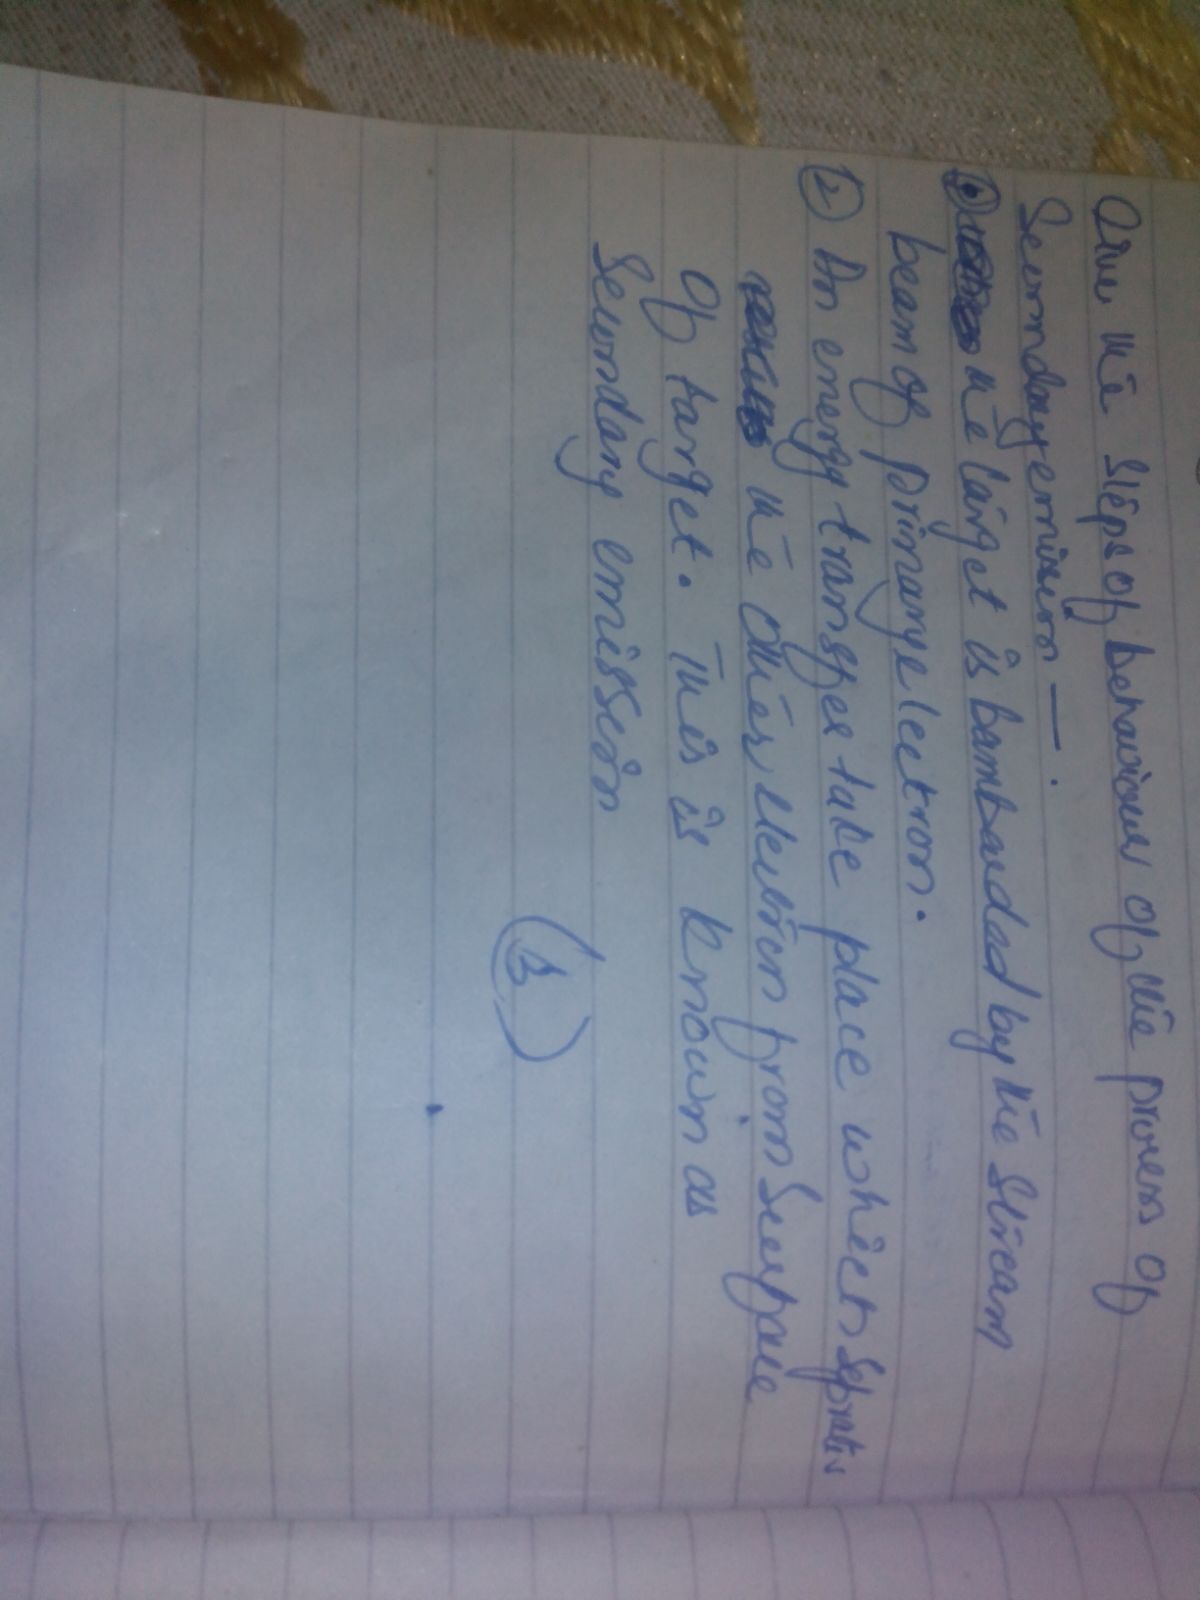 Give the steps of behaviour of the process of
Secondary emission — .
① the target is bambarded by the stream
beam of primary electron.
② An energy transfer take place which seprates
the other electron from surface
Of target. This is known as
Secondary emission